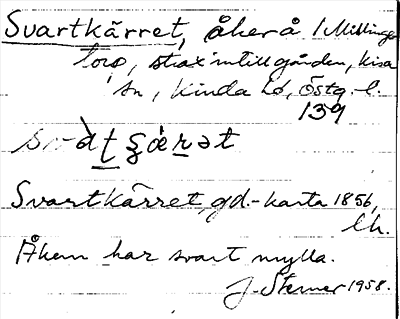 Svartkärret, åker å Mellinge
torp, strax intill gården, Kisa
sn, Kinda hd, Östg. l.
139
Svartkärret, gd.-karta 1856,
Åkern har svart mylla.
J. Sterner 1958.